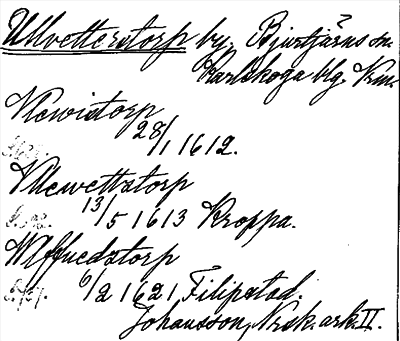 Ullvetterstorp by, Bjurtjärns sn.
Karlskoga blg. Vrm.
Vlewistorp
28/1 1612.
Vllewettstorp
13/5 1613 Kroppa.
6/2 1621 Filipstad.
Johansson, Nrsk. ark. II.